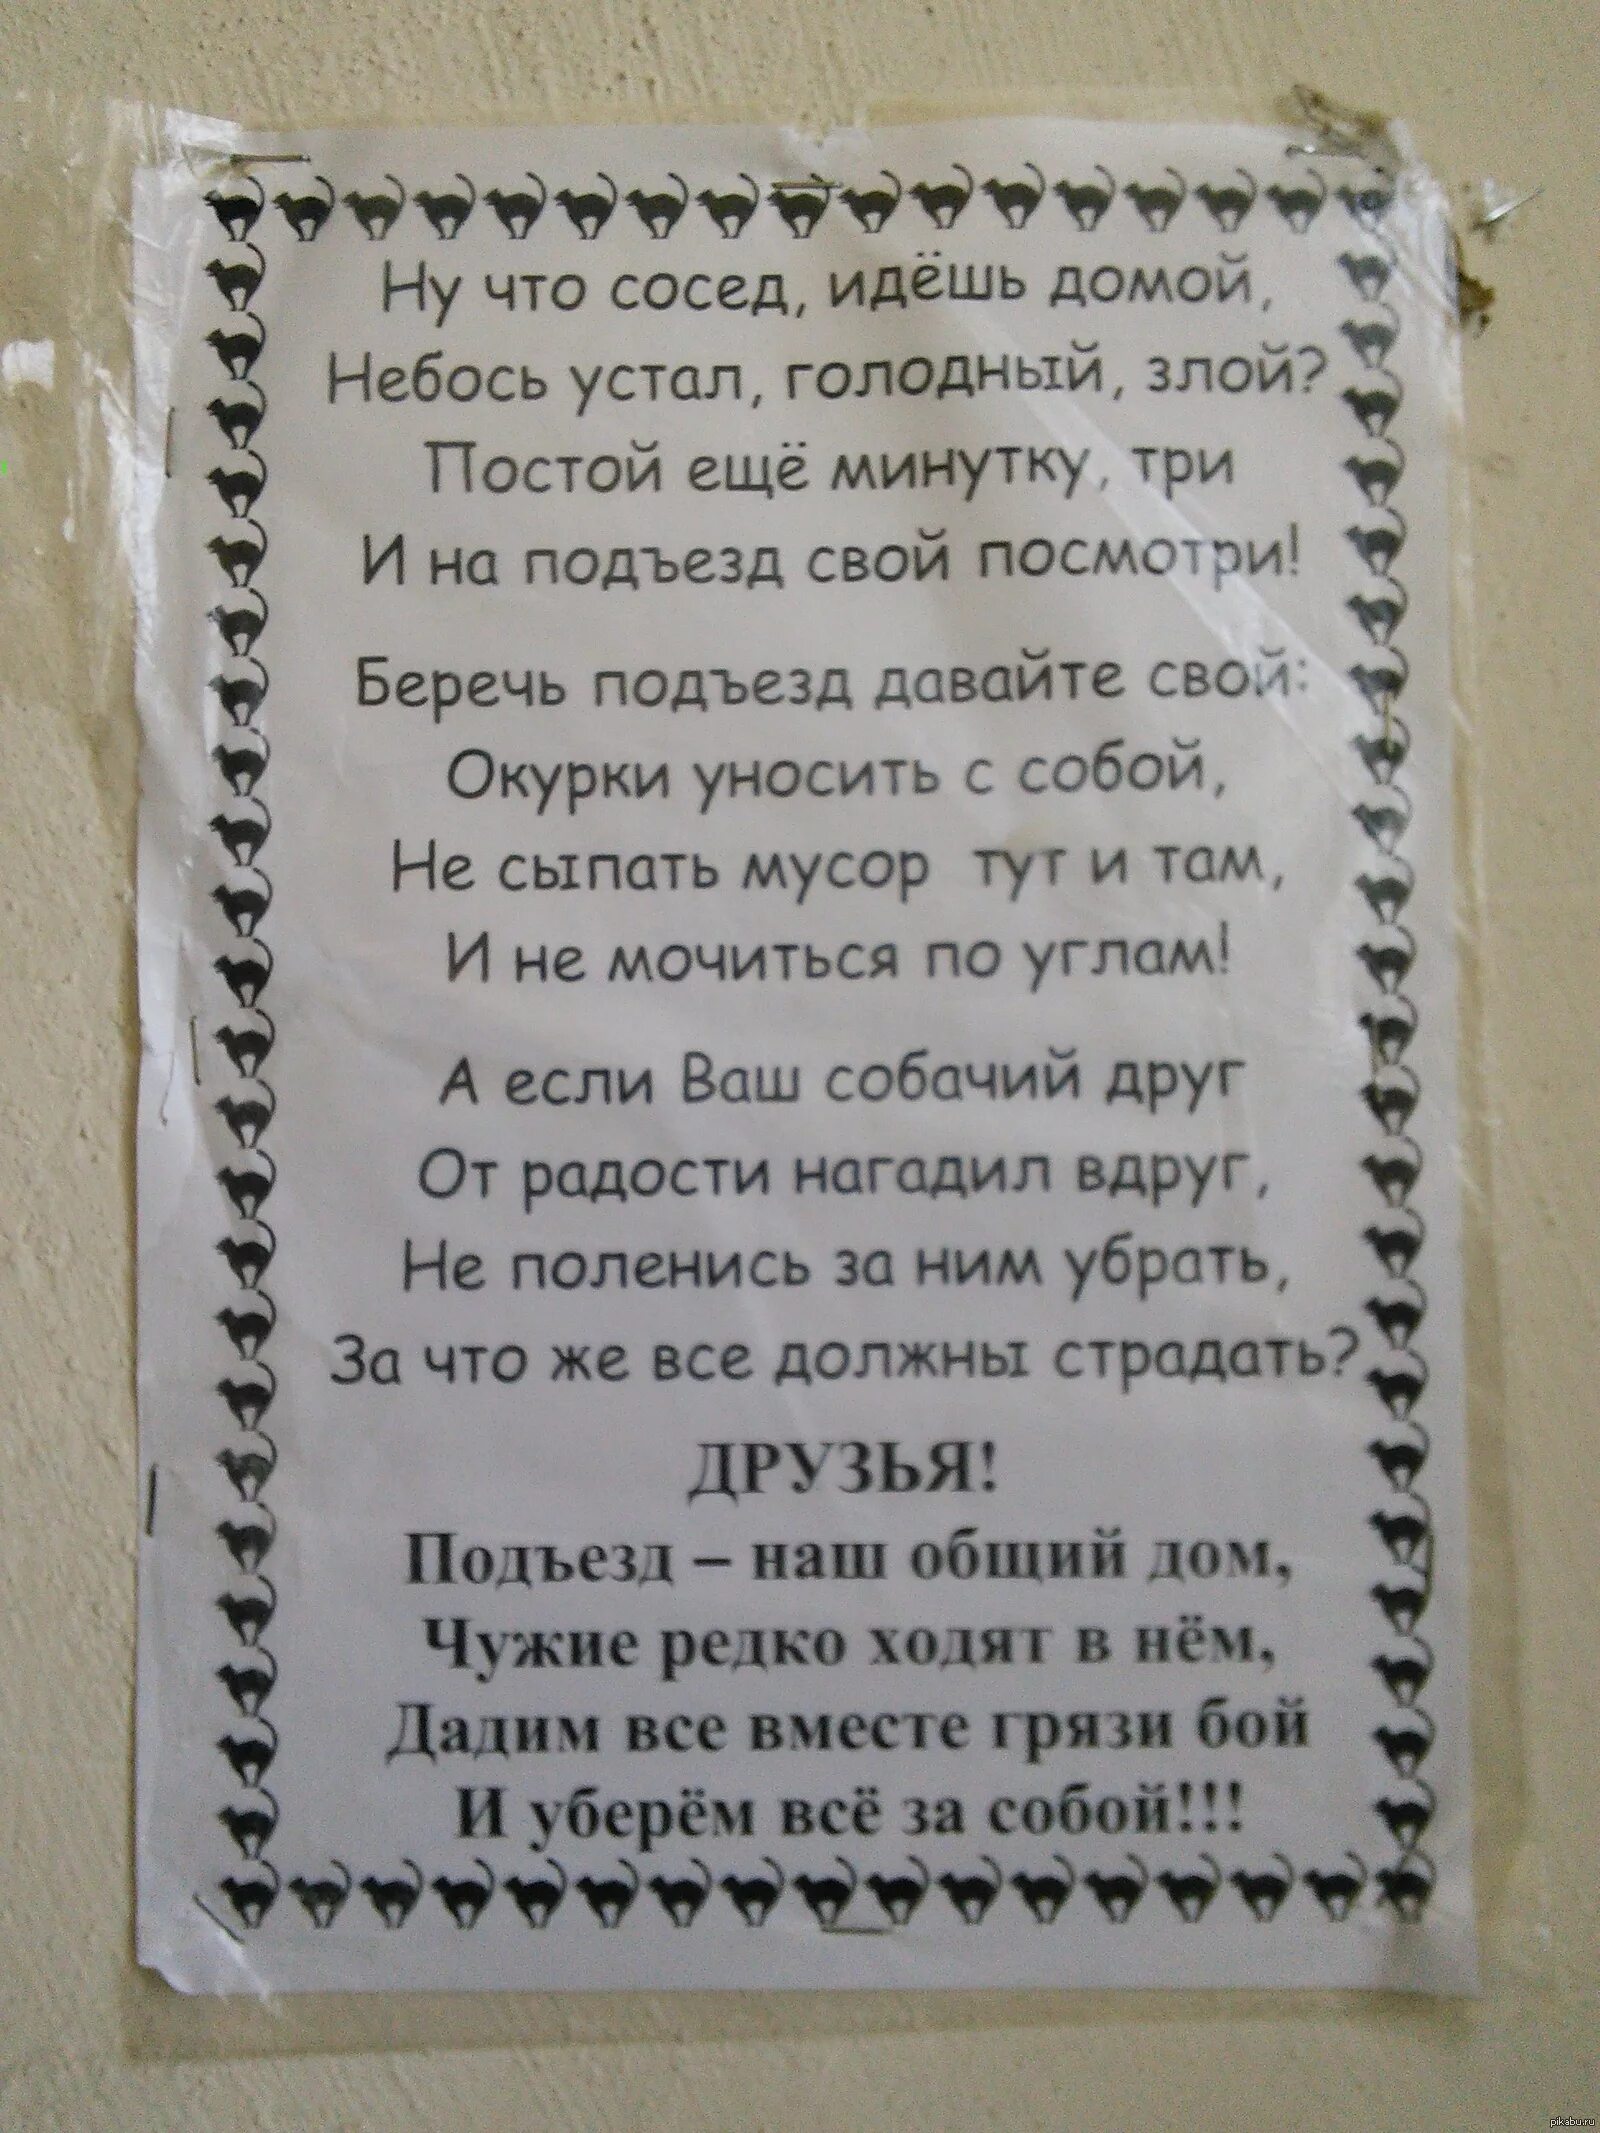 Ну что сосед, идёшь домой,
Небось устал, голодный, злой?
Постой ещё минутку, три
И на подъезд свой посмотри!
Беречь подъезд давайте свой:
Окурки уносить с собой,
Не сыпать мусор тут и там,
И не мочиться по углам!
А если Ваш собачий друг
От радости нагадил вдруг,
Не поленись за ним убрать,
За что же все должны страдать?
ДРУЗЬЯ!
Подъезд – наш общий дом,
Чужие редко ходят в нём,
Дадим все вместе грязи бой
И уберём всё за собой!!!
pikabu.ru